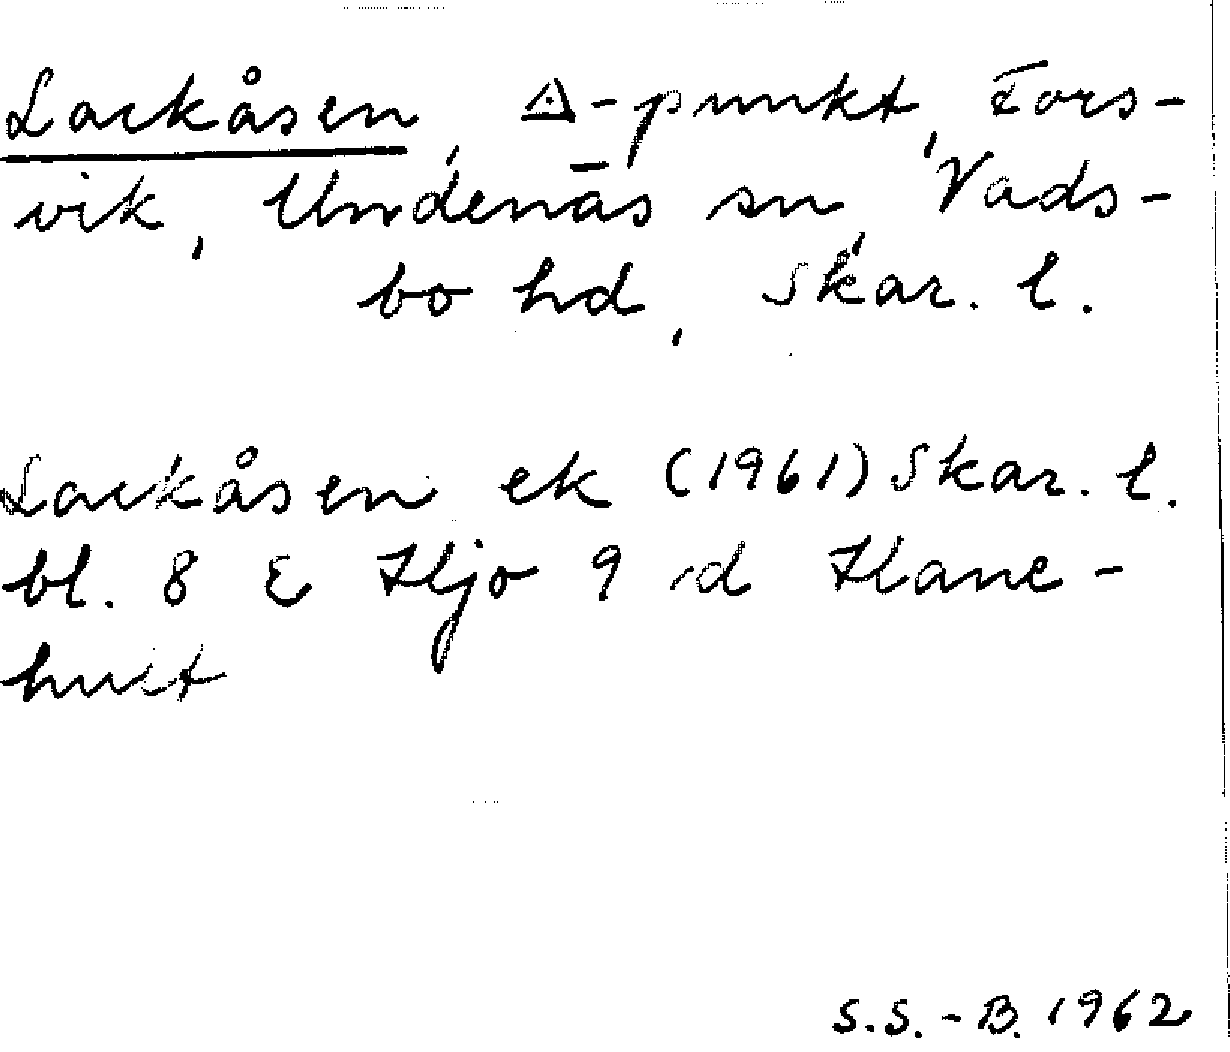 Lackåsen, ◬-punkt, Fors-
vik, Undenäs sn, Vads-
bo hd, Skar. l.
Lackåsen ek (1961) Skar. l.
bl. 8 E Hjo 9 d Hane-
hult
S.S.-B. 1962